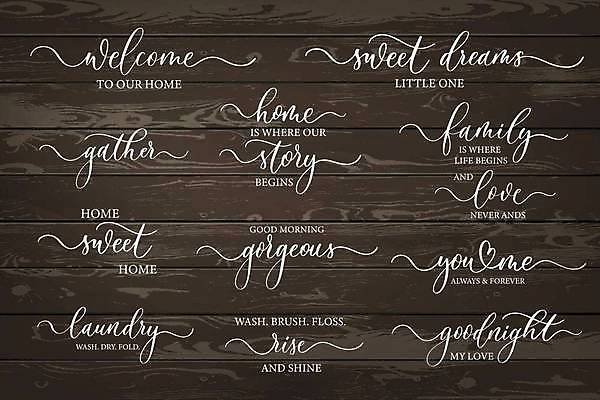 welcome
TO OUR HOME
sweet dreams
LITTLE ONE
home
IS WHERE OUR
story
BEGINS
family
IS WHERE
LIFE BEGINS
AND
love
NEVER ANDS
gather
HOME
sweet
HOME
GOOD MORNING
gorgeous
you me
ALWAYS & FOREVER
laundry
WASH. DRY. FOLD.
WASH. BRUSH. FLOSS.
rise
AND SHINE
goodnight
MY LOVE